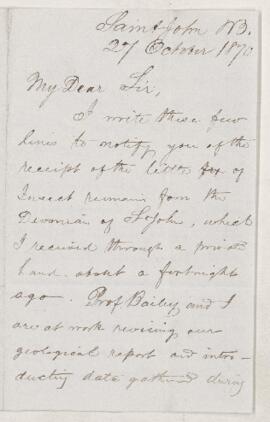 Saint John NB.
27 October 1870
My Dear Sir,
I write these few
lines to notify you of the
receipt of the of
Insect remains from the
Devonian of St John, which
I received through a private
hand about a fortnight
ago. Prof. Bailey and I
are at work revising our
geological report and intro-
ducting data gathered during